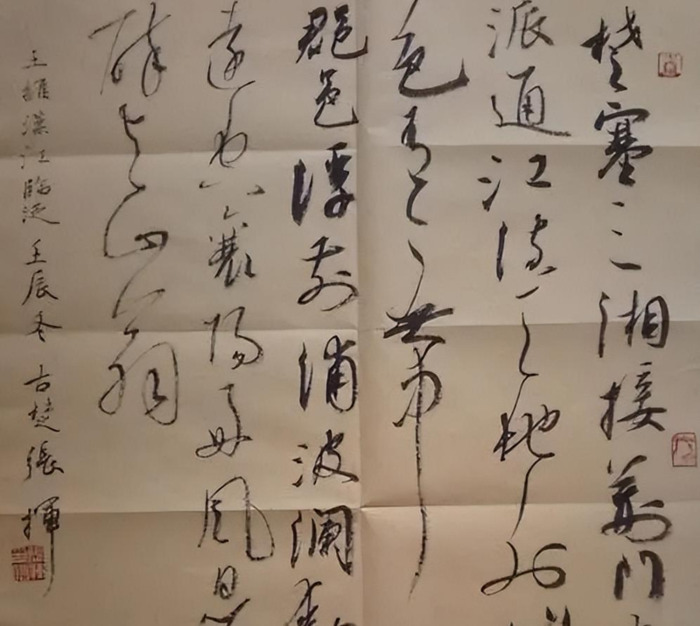 楚塞三湘接荆门
派通江流天地外
色有無中
郡邑浮前浦波澜動
遠空襄陽好風日
醉与山翁
王維漢江臨泛 壬辰冬 古楚張揮